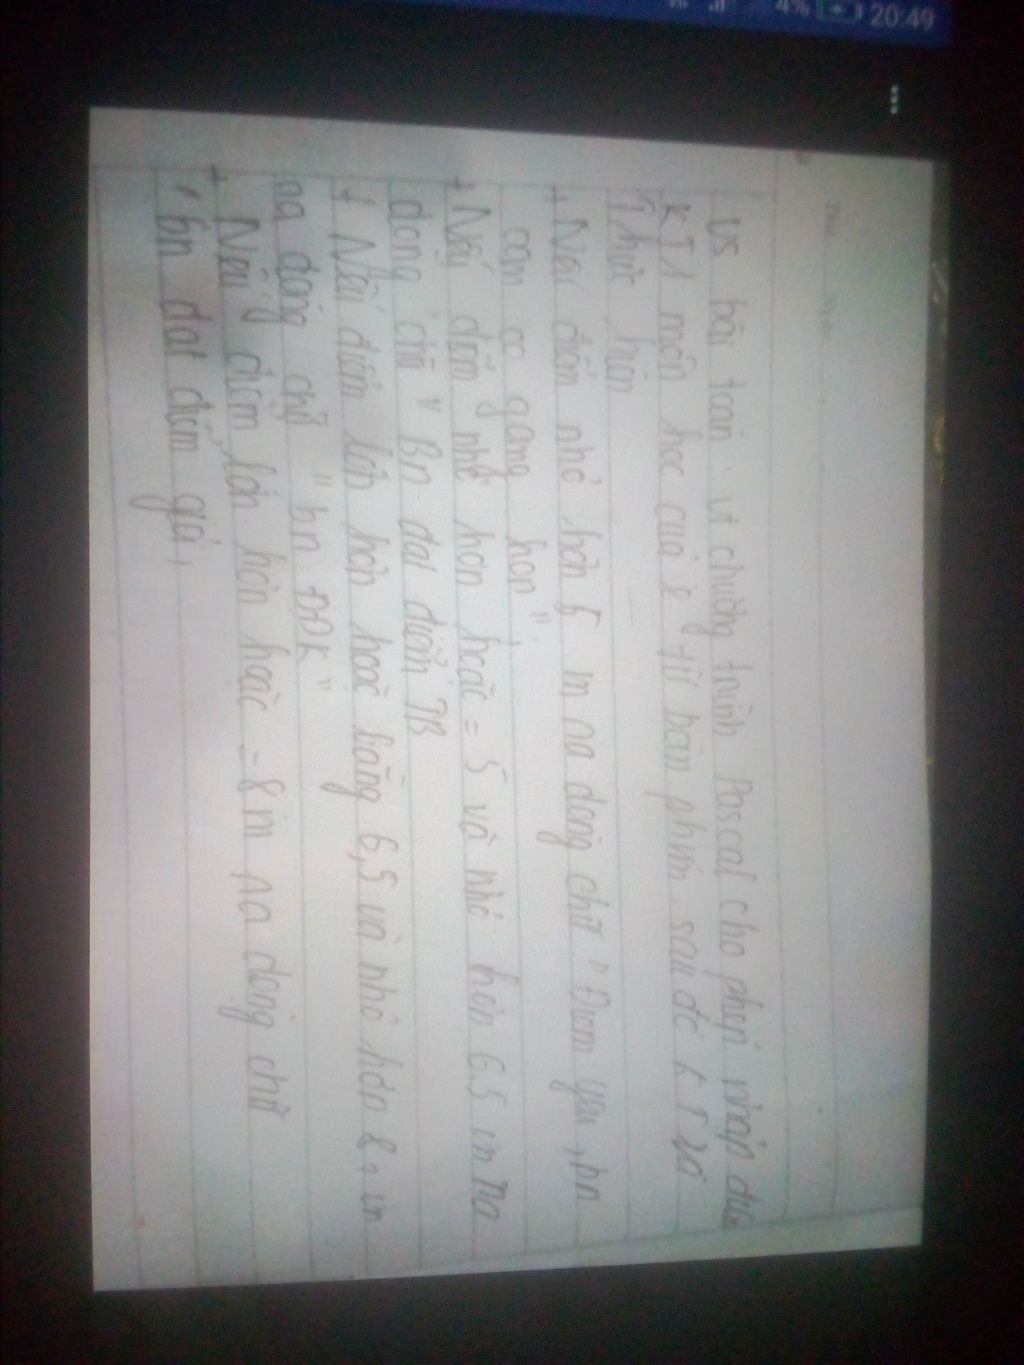 4% 20:49
bài toán. vt chường trình Pascal cho phép nhập điể
KT 1 môn học của x từ bàn phím. sau đó KT và
Thực hiện
+ Nếu điểm nhỏ hơn 5 in na dòng chữ "Điểm yếu, bn
cần cố gắng hơn".
+ Nếu điểm nhỏ hơn hoặc = 5 và nhỏ hơn 6.5 in na
dòng chữ "Bn đạt điểm TB
+ Nếu điểm lớn hơn hoặc bằng 6,5 và nhỏ hơn 8, in
na dòng chữ "bn ĐĐK"
+ Nếu điểm lớn hơn hoặc = 8 in na dòng chữ
"bn đạt điểm giỏi,